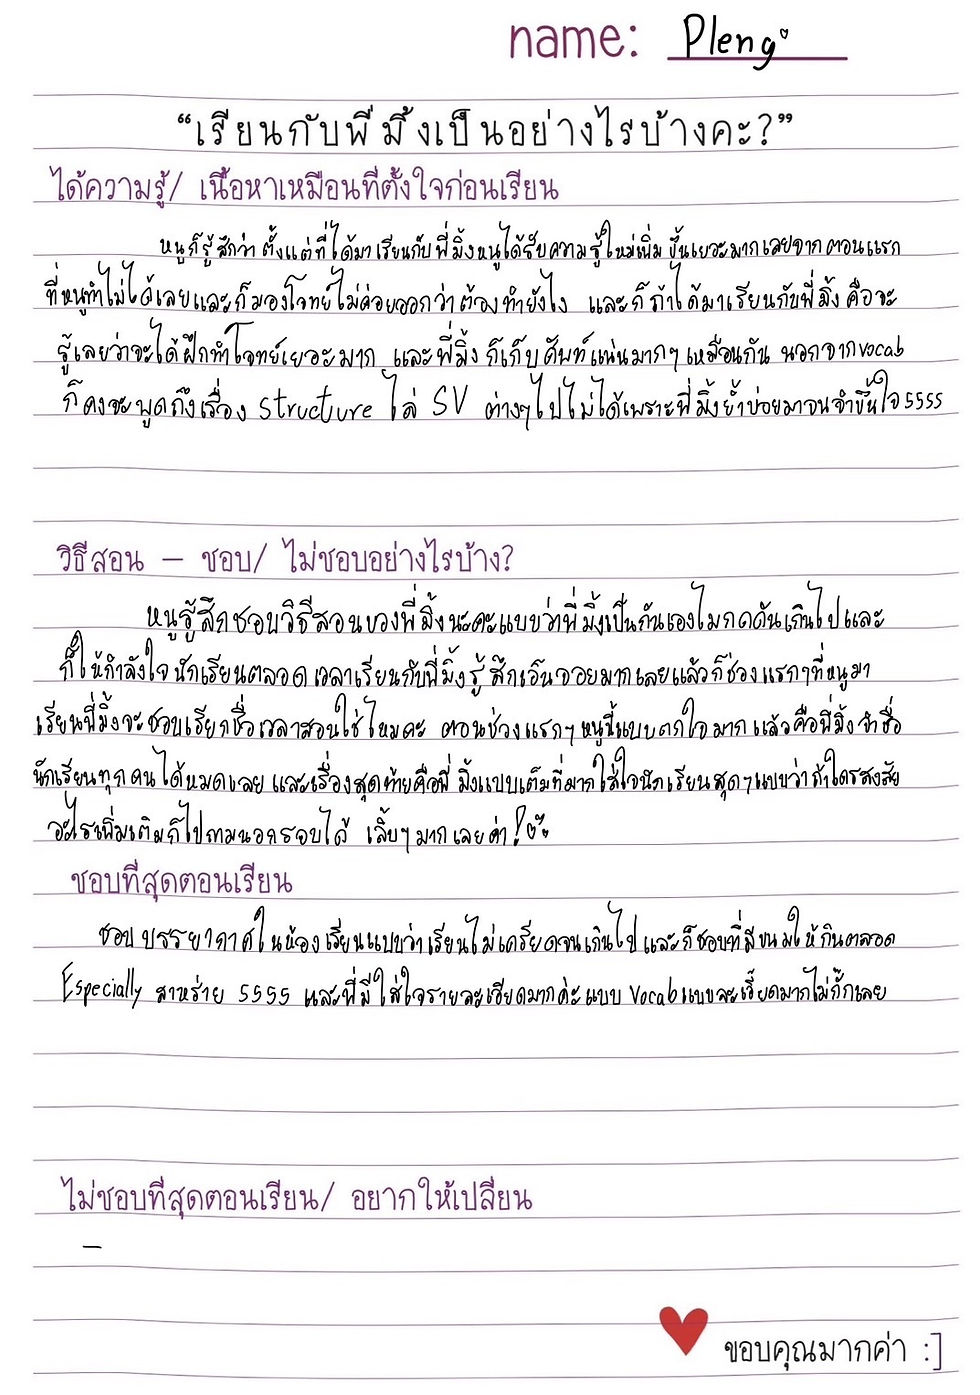 name: Pleng
“เรียนกับพี่มิ้งเป็นอย่างไรบ้างคะ?”
ได้ความรู้/ เนื้อหาเหมือนที่ตั้งใจก่อนเรียน
หนูก็รู้สึกว่า ตั้งแต่ที่ได้มาเรียนกับพี่มิ้งหนูได้รับความรู้ใหม่เพิ่มขึ้นเยอะมากเลยจากตอนแรก
ที่หนูทำไม่ได้เลยและก็มองโจทย์ไม่ค่อยออกว่าต้องทำยังไง และก็ถ้าได้มาเรียนกับพี่มิ้งคือจะ
รู้เลยว่าจะได้ฝึกทำโจทย์เยอะมาก และพี่มิ้งก็เก็บศัพท์แน่นมากๆเหมือนกัน นอกจากvocab
ก็คงจะพูดถึงเรื่อง structure ไล่ SV ต่างๆไปไม่ได้เพราะพี่มิ้งย้ำบ่อยมาจนจำขึ้นใจ5555
วิธีสอน – ชอบ/ ไม่ชอบอย่างไรบ้าง?
หนูรู้สึกชอบวิธีสอนของพี่มิ้งนะคะแบบว่าพี่มิ้งเป็นกันเองไม่กดดันเกินไปและ
ก็ให้กำลังใจนักเรียนตลอด เวลาเรียนกับพี่มิ้งรู้สึกเอ็นจอยมากเลยแล้วก็ช่วงแรกๆที่หนูมา
เรียนพี่มิ้งจะชอบเรียกชื่อเวลาสอนใช่ไหมคะ ตอนช่วงแรกๆหนูนี้แบบตกใจมากแล้วคือพี่มิ้งจำชื่อ
นักเรียนทุกคนได้หมดเลย และเรื่องสุดท้ายคือพี่มิ้งแบบเต็มที่มากใส่ใจนักเรียนสุดๆแบบว่าถ้าใครสงสัย
อะไรเพิ่มเติมก็ไปถามนอกรอบได้ เลิ้บๆมากเลยค่า!
ชอบที่สุดตอนเรียน
ชอบบรรยากาศในห้องเรียนแบบว่าเรียนไม่เครียดจนเกินไป และก็ชอบที่มีขนมให้กินตลอด
Especially สาหร่าย 5555 และพี่มีใส่ใจรายละเอียดมากค่ะแบบ vocabแบบละเอี๊ยดมากไม่กั๊กเลย
ไม่ชอบที่สุดตอนเรียน/ อยากให้เปลี่ยน
–
ขอบคุณมากค่า :]